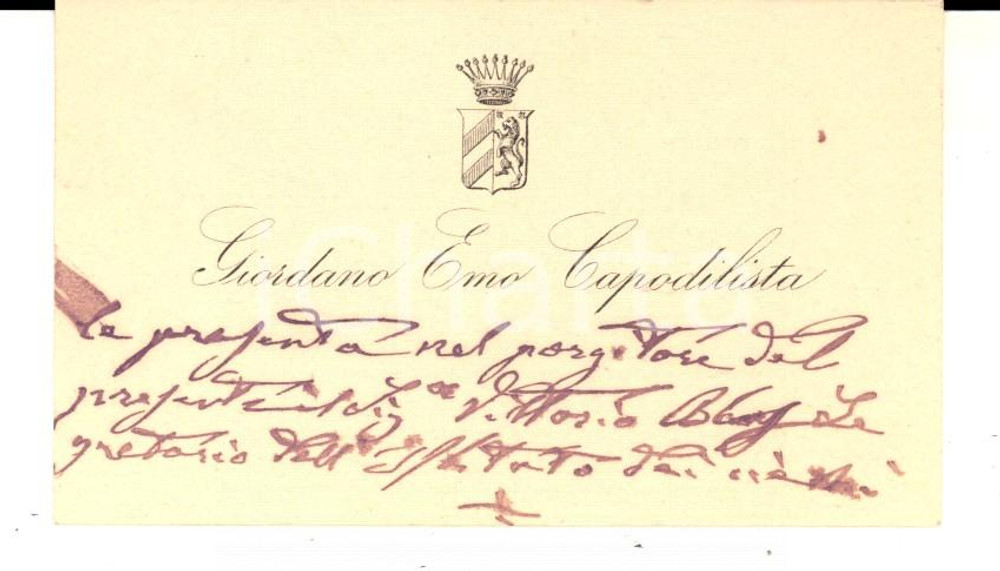 Giordano Emo Capodilista
le presenta nel porgitore del
presente il Sig.or Vittorio Se
gretario dell'Istituto dei ciechi